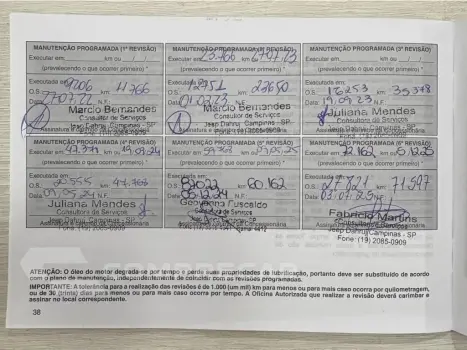 MANUTENÇÃO PROGRAMADA (1ª REVISÃO)
Executar em: km ou / /
(prevalecendo o que ocorrer primeiro) *
Executada em:
O.S.: 9206 km 11766
Data: 27.07.22 N.F.:
Marcio Bernandes
Consultor de Serviços
Jeep Dahruj Campinas - SP
MANUTENÇÃO PROGRAMADA (2ª REVISÃO)
Executar em: 23.766 km ou 27.07.23
(prevalecendo o que ocorrer primeiro) *
Executada em:
O.S.: 12751 km
Data: 01.02.23 N.F.:
Marcio Bernandes
Consultor de Serviços
Jeep Dahruj Campinas - SP
MANUTENÇÃO PROGRAMADA (3ª REVISÃO)
Executar em: km ou / /
(prevalecendo o que ocorrer primeiro) *
Executada em:
O.S.: 16253 km: 35378
Data: 19.09.23 N.F.:
Juliana Mendes
Consultora de Serviços
Jeep Dahruj Campinas - SP
Fone: (19) 2085-0909
MANUTENÇÃO PROGRAMADA (4ª REVISÃO)
Executar em: 47.371 km ou 19.09.24
(prevalecendo o que ocorrer primeiro) *
Executada em:
O.S.: 20555 km: 47.768
Data: 09.05.24 N.F.:
Juliana Mendes
Consultora de Serviços
Jeep Dahruj Campinas - SP
Fone: (19) 2085-0909
MANUTENÇÃO PROGRAMADA (5ª REVISÃO)
Executar em: km ou 09.05.25
(prevalecendo o que ocorrer primeiro) *
Executada em:
O.S.: km: 60.162
Data: N.F.:
Geovanna Fuscaldo
Consultora de Serviços
Jeep Dahruj Campinas - SP
MANUTENÇÃO PROGRAMADA (6ª REVISÃO)
Executar em: 72162 km ou
(prevalecendo o que ocorrer primeiro) *
Executada em:
O.S.: 27821 km: 71597
Data: 03.07.25
Fabricio Martins
Consultor de Serviços
Jeep Dahruj Campinas - SP
Fone: (19) 2085-0909
ATENÇÃO: O óleo do motor degrada-se por tempo e perde suas propriedades de lubrificação, portanto deve ser substituído de acordo
com o plano de manutenção, independentemente de coincidir com as revisões programadas.
IMPORTANTE: A tolerância para a realização das revisões é de 1.000 (um mil) km para menos ou para mais caso ocorra por quilometragem,
ou de 30 (trinta) dias para menos ou para mais caso ocorra por tempo. A Oficina Autorizada que realizar a revisão deverá carimbar e
assinar no local correspondente.
38